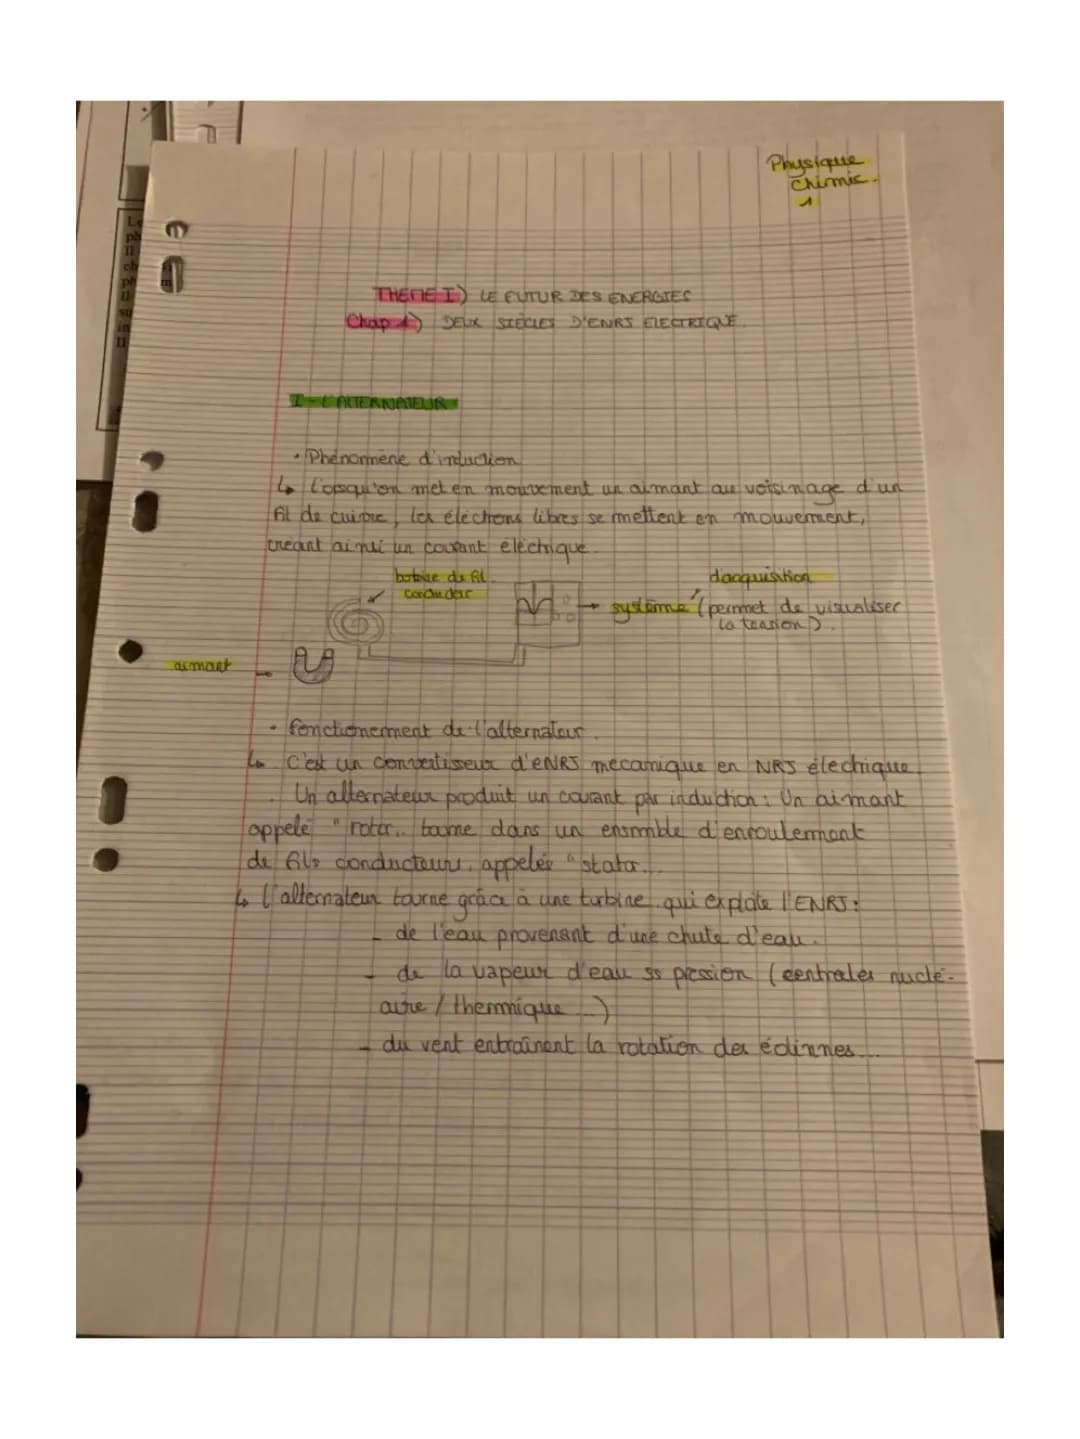 Physique
Chimie.
1
THEME I) LE FUTUR DES ENERGIES
Chap 1) DEUX SIECLES D'ENRJ ELECTRIQUE
I - L'ALTERNATEUR
• Phénomène d'induction
↳ lorsqu'on met en mouvement un aimant au voisinage d'un
fil de cuivre, les électrons libres se mettent en mouvement,
créant ainsi un courant électrique.
bobine de fil
conducteur
d'acquisition
système (permmet de visualiser
la tension).
aimant
• fonctionement de l'alternateur.
↳ C'est un convertisseur d'ENRJ mécanique en NRJ électrique.
Un alternateur produit un courant par induction : Un aimant
appelé "rotor" tourne dans un ensemble d'enroulement
de fils conducteurs, appelés "stator".
↳ l'alternateur tourne grâce à une turbine qui exploite l'ENRJ :
- de l'eau provenant d'une chute d'eau.
- de la vapeur d'eau ss pression (centrales nuclé-
aire / thermique ...)
- du vent entraînant la rotation des éolinnes...